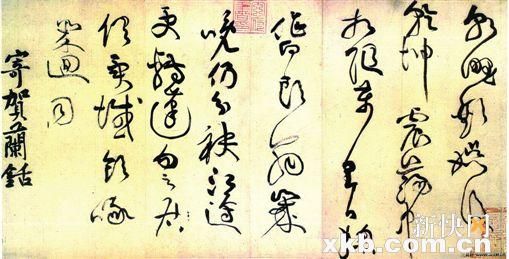 朝野歡娛後
乾坤震蕩中
相隨萬里日總
作白頭翁歲
晚仍分袂江邊
更轉蓬勿云
俱異域飲啄
幾迴同
寄賀蘭銛
新快网
xkb.com.cn